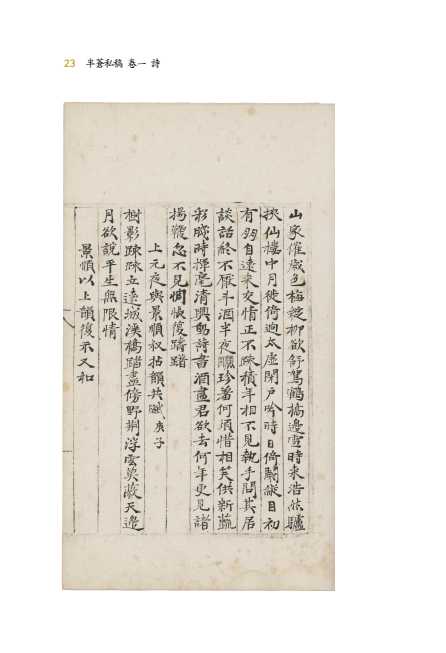 23 半蒼私稿 卷一 詩
山家催歲色梅綻柳欲舒駕鶴橋邊雪時來浩然驢
挾仙樓中月徙倚逈太虛閉戶吟時日倚目初
有朋自遠來交情正不踈積年相不見執手問其居
談話終不厭斗酒半夜釃珍羞何須惜相笑供新蔬
彩成時揮毫清興動詩書酒盡君欲去何年更見諸
揚鞭忽不見惆悵復躊躇
上元夜與景順叔拈韻共賦 庚子
樹影踈踈立遠城溪橋踏盡傍野荊浮雲莫蔽天邊
月欲說平生無限情
景順以上韻復示又和